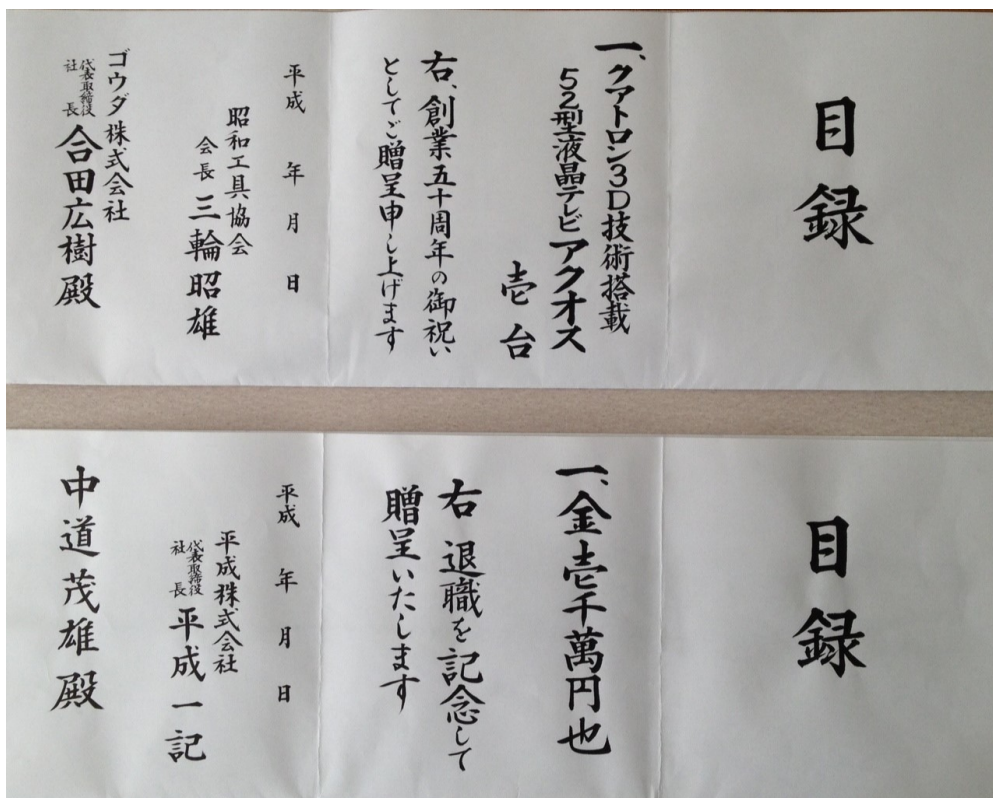 目録
一、クアトロン3D技術搭載
52型液晶テレビアクオス
壱台
右、創業五十周年の御祝い
としてご贈呈申し上げます
平成 年 月 日
昭和工具協会
会長 三輪昭雄
ゴウダ株式会社
代表取締役社長 合田広樹殿
目録
一、金壱千萬円也
右 退職を記念して
贈呈いたします
平成 年 月 日
平成株式会社
代表取締役社長 平成一記
中道茂雄殿